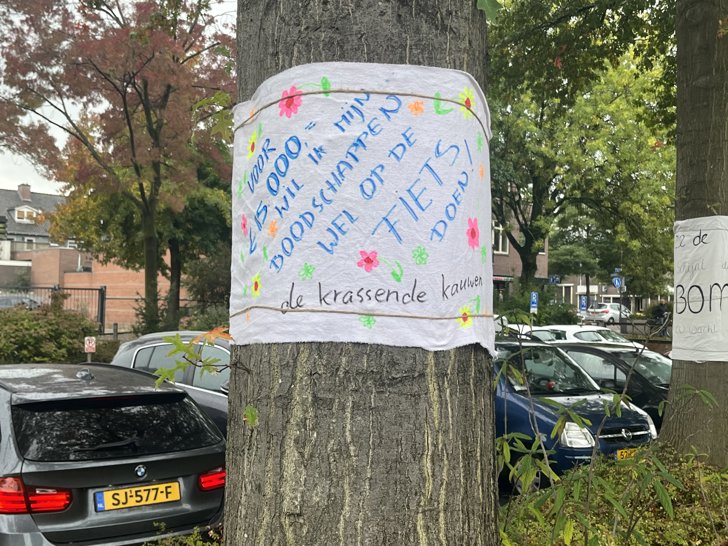 VOOR
€15.000=
WIL IK MIJN
BOODSCHAPPEN
WEL OP DE
FIETS
DOEN!
de krassende kauwen
de
BOM
SJ-577-F
NL